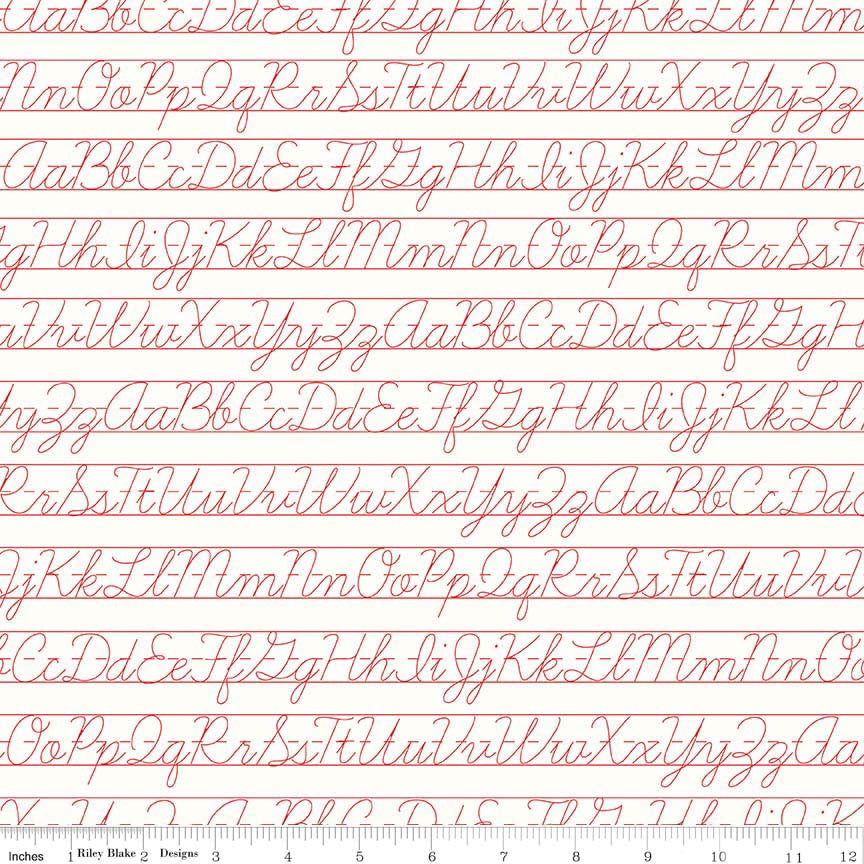 AaBbCcDdEeFfGgHhIiJjKkLlMm
NnOoPpQqRrSsTtUuVvWwXxYyZz
AaBbCcDdEeFfGgHhIiJjKkLlMm
gHhIiJjKkLlMmNnOoPpQqRrSsTt
uVvWwXxYyZzAaBbCcDdEeFfGgH
YyZzAaBbCcDdEeFfGgHhIiJjKkLl
RrSsTtUuVvWwXxYyZzAaBbCcDd
JjKkLlMmNnOoPpQqRrSsTtUuVv
bCcDdEeFfGgHhIiJjKkLlMmNnOo
OoPpQqRrSsTtUuVvWwXxYyZzAa
Inches 1 Riley Blake 2 Designs 3 4 5 6 7 8 9 10 11 12